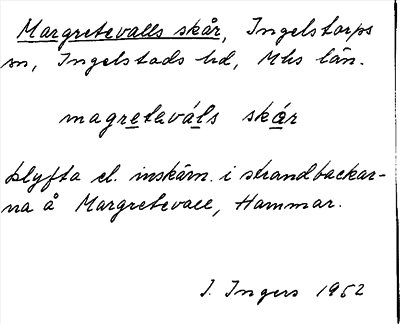 Margretevalls skår, Ingelstorps
sn, Ingelstads hd, Mhs län.
magretaváls skár
klyfta el. inskärn. i strandbackar-
na å Margretevall, Hammar.
I. Ingers 1952